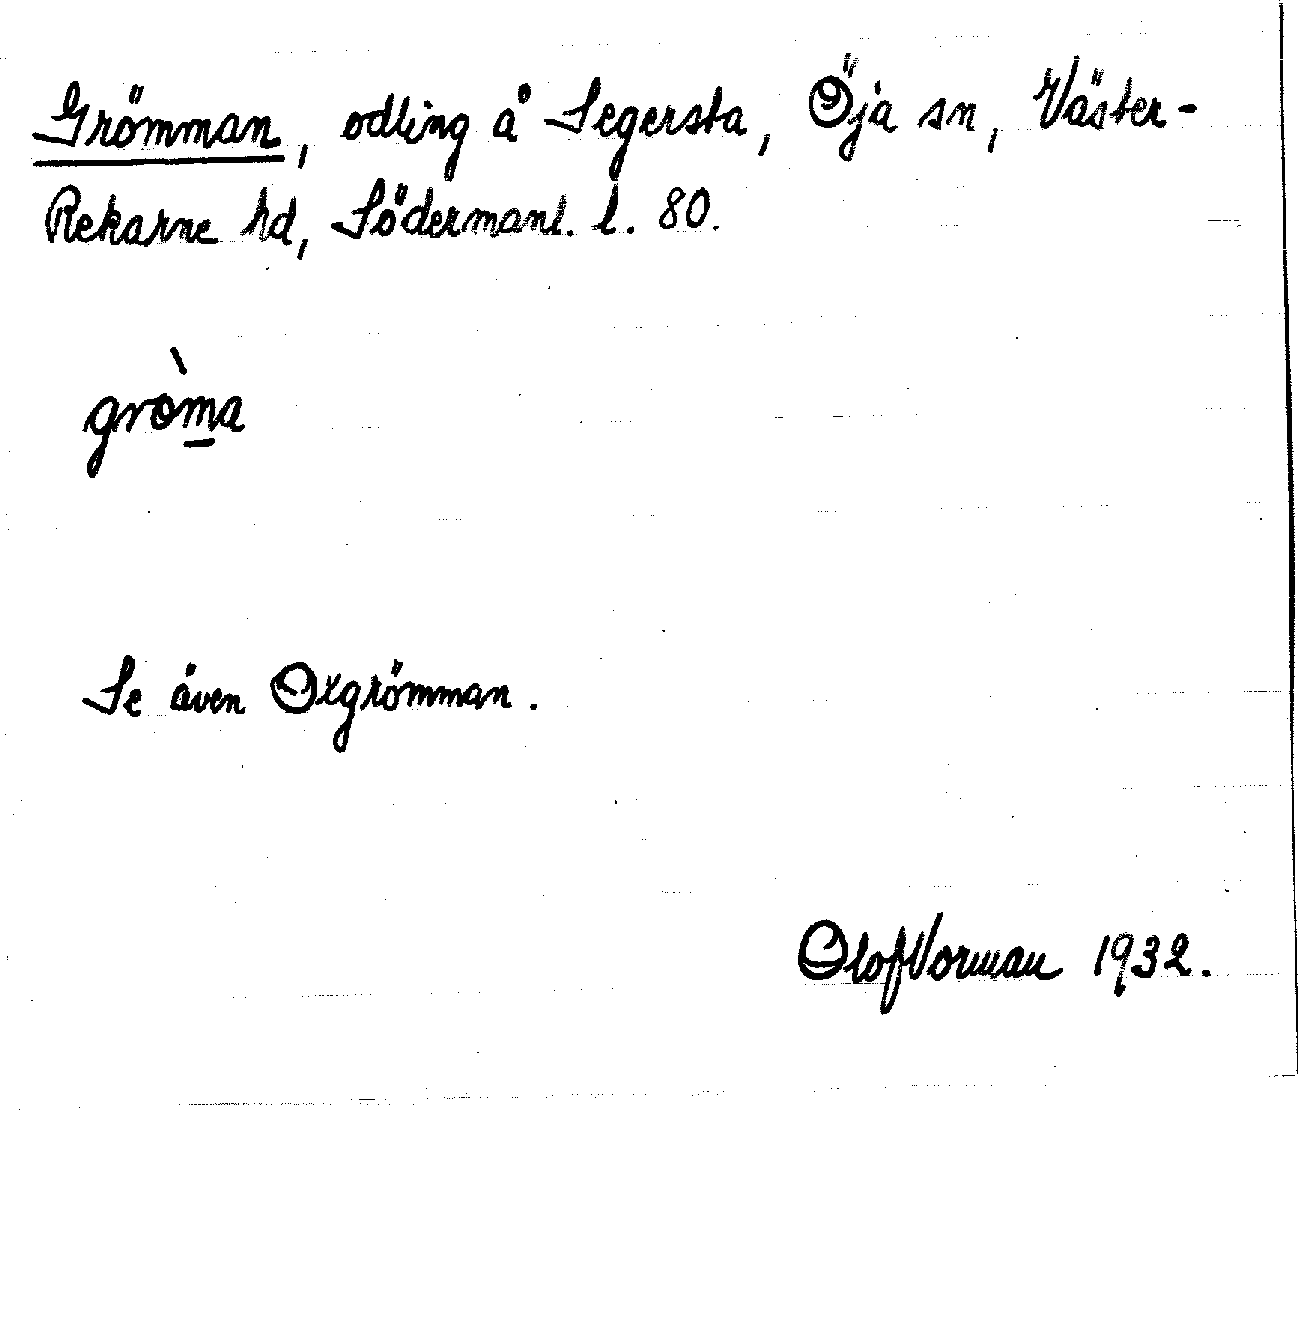 Grömman, odling å Segersta, Öja sn, Väster-
Rekarne hd, Södermanl. l. 80.
gròma
Se även Oxgrömman.
Olof Vorman 1932.